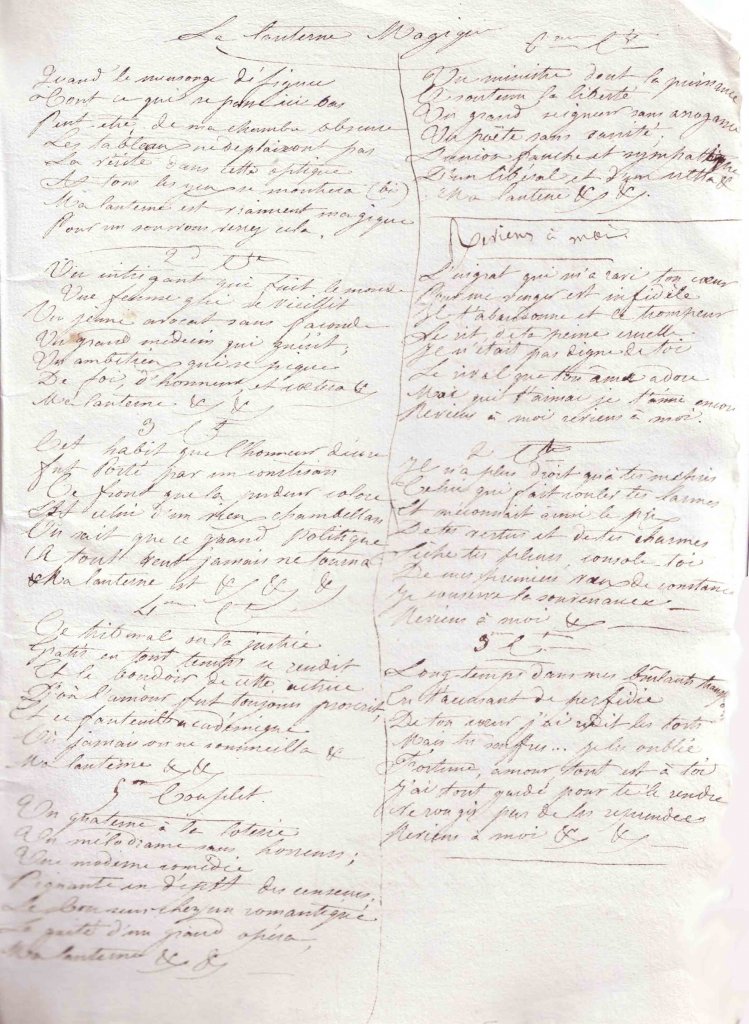 La lanterne Magique
Quand le mensonge défigure
Tout ce qui se passe ici bas
Peut être de ma chambre obscure
Les tableau ne deplairont pas
La vérité dans cette optique
A tous les yeux se montrera (bis)
Ma lanterne est vraiment magique
Pour un sou vous verrez cela.
2d Ct
Un intrigant qui fuit le monde
Une femme qui se vieillit
Un jeune avocat sans faconde
Un grand médecin qui guérit;
Un ambitieu qui se pique
De foi, d'honneur et cætera &
Ma lanterne & &
3 Ct
Cet habit que l'honneur décore
fut porté par un courtisan
Ce front que la pudeur colore
Est celui d'un vieu chambellan
On sait que ce grand Politique
A tout vent jamais ne tourna
Ma lanterne est & & & &
4me Ct
Ce tribunal où la justice
Gratis en tout temps se rendit
Et le boudoir de cette actrice
D'où l'amour fut toujours proscrit,
Et ce fauteuil académique
Où jamais on ne sommeilla &
Ma lanterne & &
5me Couplet.
Un quaterne à la loterie
Un mélodrame sans horreurs;
Une moderne comédie
Piquante en dépit des censeurs,
Le bon sens chez un romantique
La gaité d'un grand opéra,
Ma lanterne & &
6me Ct
Un ministre dont la puissance
A soutenu la liberté
Un grand seigneur sans arrogance
Un poëte sans vanité.
L'union franche et sympathique
D'un libéral et d'un ultra &
Ma lanterne & &.
Reviens à moi
L'ingrat qui m'a ravi ton cœur
Pour me venger est infidèle
Il t'abandonne et ce trompeur
Se rit de ta peine cruelle
Il n'était pas digne de toi
Le rival que ton ame adore
Moi qui t'aimai je t'aime encor
Reviens à moi reviens à moi.
2 Ct
Il n'a plus droit qu'à tes mépris
Celui qui fait couler tes larmes
Et méconnait ainsi le prix
De tes vertus et de tes charmes
Sèche tes pleurs, console toi
De mes premiers vœux de constance
Je conserve la souvenance
Reviens à moi &
3e Ct
Long-temps dans mes brulants transports
En t'accusant de perfidie
De ton cœur j'ai les torts
Mais tu souffres... je les oublie
Fortune, amour, tout est à toi
J'ai tout gardé pour te le rendre
Ne rougis pas de les reprendre
Reviens à moi & &